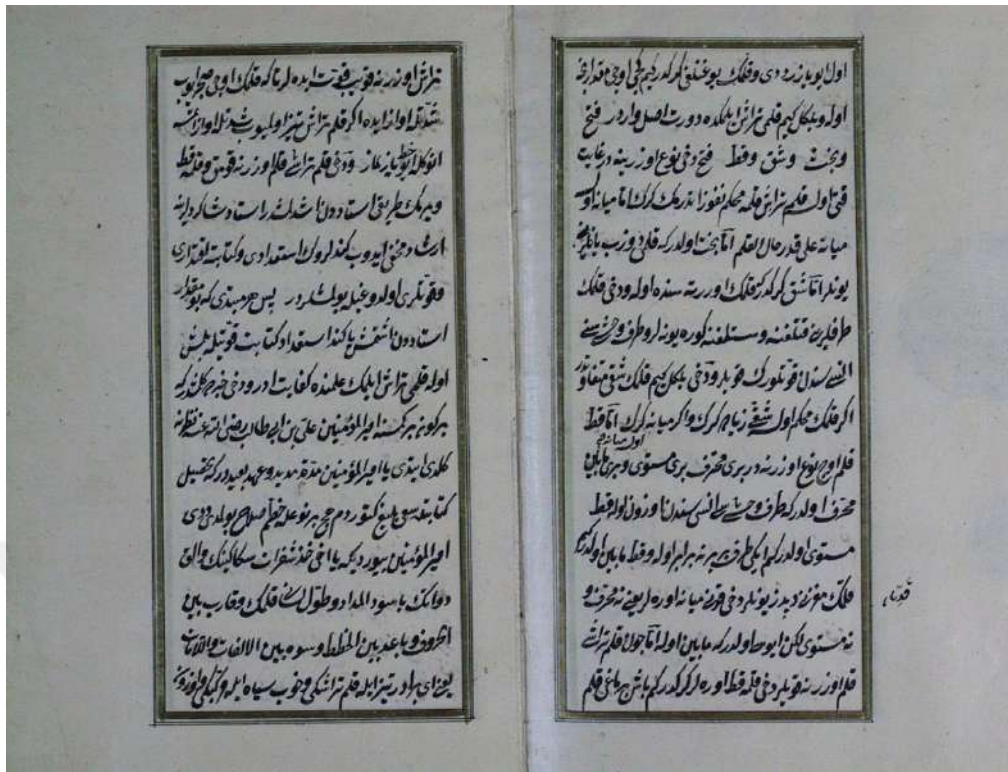 اول بویازردی و قلمك یوغنلغی كركدركیم قمی اوجی مقداری
اوله و بلكل كیم قلمی تراش ایلمكده دورت اصل واردر فتح
و نحت و شق و قط فتح دخی نوع اوزرینه در غایت
قتی اول قلم تراش قلمه محكم نفوذ اتدرمك كرك اما میانه اولسه
میانه علی قدر حال القلم اما نحت اولدركه قلمی دوزب یانلرین
یونلر اما شق كركدركه قلمك اورته سنده اوله و دخی قلمك
طرفلرین قتلغنه و سستلغنه كوره یونه لر و طرف وحشیسنی
انسیسندن قوتلورك قویلر و دخی بلكل كیم قلمك شقی متفاوتدر
اكر قلمك محكم اولسه شقی زیاده كرك و اكر میانه كرك اما قط
اول میانه
قلم اوج نوع اوزرینه در بری محرف بری مستوی و بری مابین
محرف اولدركه طرف وحشیسی انسیسندن اوزون اوله قط
مستوی اولدركیم ایكی طرفی بربرینه برابر اوله و قط مابین اولدركیم
قلمك مغزنی دیدر یونلر دخی قوین میانه اوره لر یعنی نه محرف و
نه مستوی لكن ایو خط اولدركه مابین اوله اما چون قلم تراشی
قلم اوزرینه قویلر دخی قلمه قط اوره لر كركدركیم باش برمغی قلم
تراش اوزرینه قویب قوت ایده لر تا كه قلمك اوجی صحیح اولوب
شدتله اواز ایده اكر قلم تراش تیز اولمیوب شدتله اواز اتمسه
انوكله ایو خط یازیلماز و دخی قلم تراشی قلم اوزرینه قومق و قلمه قط
ویرمك طریقی استاددن اشدلمشدر استاد شاكردینه
ارشاد محض ایدوب كندلروك استعدادی و كتابته اقتداری
و قوتلری اولدوغیله بولمشلردر پس هر مبتدی كه بو مقدار
استاددن اشتمش یا كند استعداد كتابت قوتیله بلمش
اوله قلمی تراش ایلمك علمنده كفایت ایدر و دخی خبرده كلمشدركه
بركون بر كمسنه امیر المؤمنین علی بن ابی طالب رضی الله عنه نظرینه
كلدی ایتدی یا امیر المؤمنین مدة مدید و عهد بعیددركه تحصیل
كتابتده سعی بلیغ كتوردم هیچ بر نوعله خطم اصلاح بولمدی دیدی
امیر المؤمنین بیوردیكه یا اخی خذ شفرات سكاكینك و الق
دواتك باسود المداد و طول لسان قلمك و قارب بین
الحروف و باعد بین الخطوط و سوه بین الالفات و اللامات
یعنی ای برادر تیز ایله قلم تراشكی و خوب سیاه ایله مركبكی و اوزون